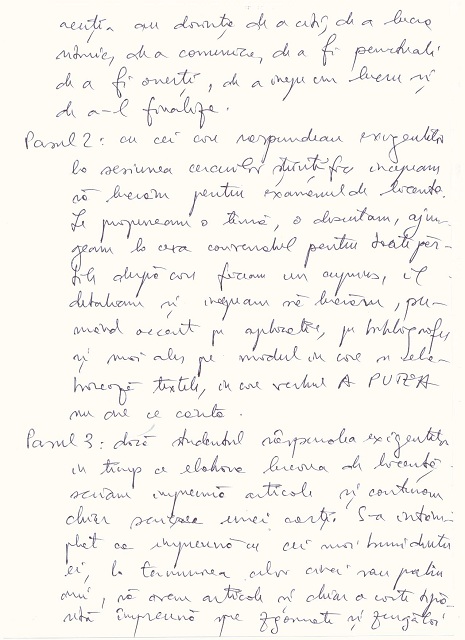 aceștia au dorința de a citi, de a lucra
ritmic, de a comunica, de a fi punctuali
de a fi onești, de a începe un lucru și
de a-l finaliza.
Pasul 2: cu cei care răspundeau exigențelor
la sesiunea cercurilor științifice începeam
să lucrăm pentru examenul de licență.
Le propuneam o temă, o discutam, ajun-
geam la ceva convenabil pentru toate păr-
țile după care făceam un cuprins, îl
detaliam și începeam să lucrăm, pu-
nând accent pe aplicație, pe bibliografie
și mai ales pe modul în care se ela-
borează textele, în care verbul A PUTEA
nu are ce căuta.
Pasul 3: dacă studentul răspundea exigențelor
în timp ce elabora lucrarea de licență
scriam împreună articole și conturam
chiar scrierea unei cărți. S-a întâm-
plat ca împreună cu cei mai buni dintre
ei, la terminarea celor cinci sau patru
ani, să avem articole și chiar o carte
împreună spre și